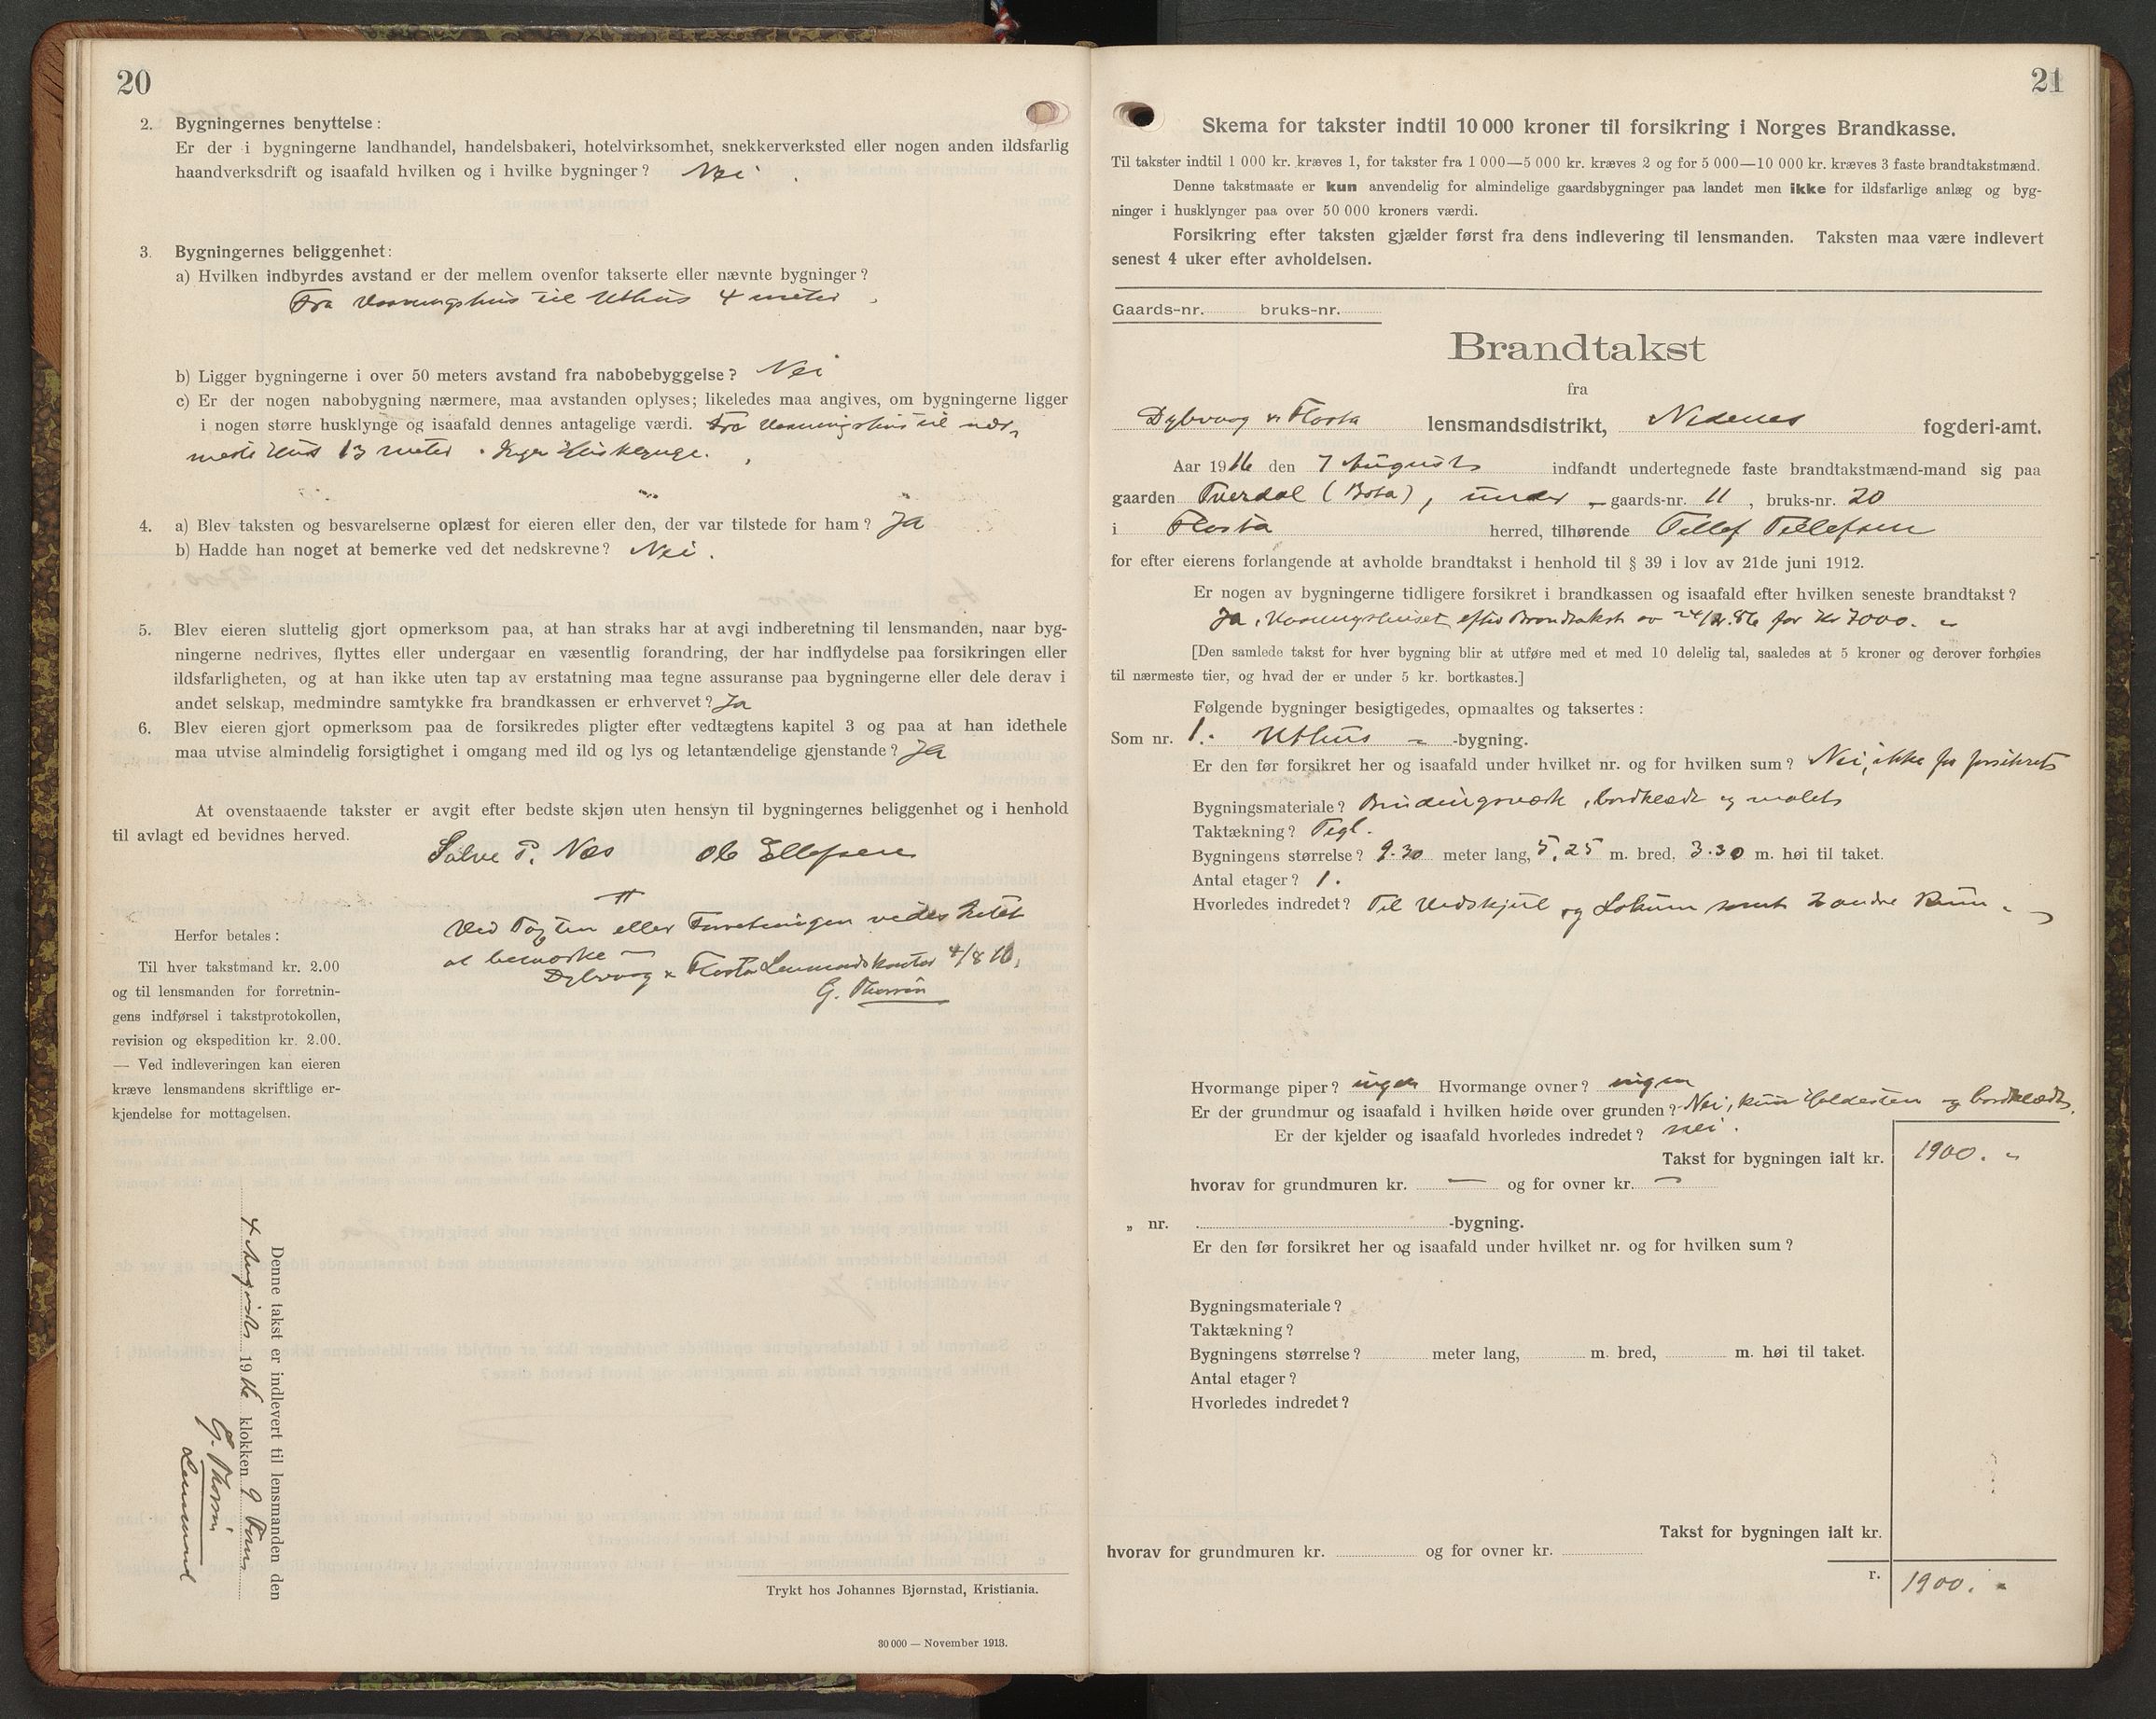 20
2. Bygningernes benyttelse:
Er der i bygningerne landhandel, handelsbakeri, hotelvirksomhet, snekkerverksted eller nogen anden ildsfarlig
haandverksdrift og isaafald hvilken og i hvilke bygninger? Nei.
3. Bygningernes beliggenhet:
a) Hvilken indbyrdes avstand er der mellem ovenfor takserte eller nævnte bygninger?
Fra Vaaningshus til Uthus 4 meter.
b) Ligger bygningerne i over 50 meters avstand fra nabobebyggelse? Nei
c) Er der nogen nabobygning nærmere, maa avstanden oplyses; likeledes maa angives, om bygningerne ligger
i nogen større husklynge og isaafald dennes antagelige værdi. Fra Vaaningshus til nær-
meste Hus 13 meter. Ingen Husklynge.
4. a) Blev taksten og besvarelserne oplæst for eieren eller den, der var tilstede for ham? Ja
b) Hadde han noget at bemerke ved det nedskrevne? Nei.
5. Blev eieren sluttelig gjort opmerksom paa, at han straks har at avgi indberetning til lensmanden, naar byg-
ningerne nedrives, flyttes eller undergaar en væsentlig forandring, der har indflydelse paa forsikringen eller
ildsfarligheten, og at han ikke uten tap av erstatning maa tegne assuranse paa bygningerne eller dele derav i
andet selskap, medmindre samtykke fra brandkassen er erhvervet? Ja
6. Blev eieren gjort opmerksom paa de forsikredes pligter efter vedtægtens kapitel 3 og paa at han idethele
maa utvise almindelig forsigtighet i omgang med ild og lys og letantændelige gjenstande? Ja
At ovenstaaende takster er avgit efter bedste skjøn uten hensyn til bygningernes beliggenhet og i henhold
til avlagt ed bevidnes herved.
Salve T. Næs Ole Ellefsen
Ved Taxten eller Forretningen vides Intet
at bemærke
Dybvaag & Flosta Lensmandskontor 4/8 16,
G. Thorsen
Herfor betales:
Til hver takstmand kr. 2.00
og til lensmanden for forretnin-
gens indførsel i takstprotokollen,
revision og ekspedition kr. 2.00.
— Ved indleveringen kan eieren
kræve lensmandens skriftlige er-
kjendelse for mottagelsen.
Denne takst er indlevert til lensmanden den
4 August 1916 klokken 9 Form
G. Thorsen
Lensmand
Trykt hos Johannes Bjørnstad, Kristiania.
30 000 — November 1913.
21
Skema for takster indtil 10 000 kroner til forsikring i Norges Brandkasse.
Til takster indtil 1 000 kr. kræves 1, for takster fra 1 000—5 000 kr. kræves 2 og for 5 000—10 000 kr. kræves 3 faste brandtakstmænd.
Denne takstmaate er kun anvendelig for almindelige gaardsbygninger paa landet men ikke for ildsfarlige anlæg og byg-
ninger i husklynger paa over 50 000 kroners værdi.
Forsikring efter taksten gjælder først fra dens indlevering til lensmanden. Taksten maa være indlevert
senest 4 uker efter avholdelsen.
Gaards-nr. bruks-nr.
Brandtakst
fra
Dybvaag & Flosta lensmandsdistrikt, Nedenes fogderi-amt.
Aar 1916 den 7 August indfandt undertegnede faste brandtakstmænd-mand sig paa
gaarden Tverdal (Bota), under gaards-nr. 11, bruks-nr. 20
i Flosta herred, tilhørende Tellef Tellefsen
for efter eierens forlangende at avholde brandtakst i henhold til § 39 i lov av 21de juni 1912.
Er nogen av bygningerne tidligere forsikret i brandkassen og isaafald efter hvilken seneste brandtakst?
Ja, Vaaningshuset efter Brandtakst av for Kr 7000.
[Den samlede takst for hver bygning blir at utføre med et med 10 delelig tal, saaledes at 5 kroner og derover forhøies
til nærmeste tier, og hvad der er under 5 kr. bortkastes.]
Følgende bygninger besigtigedes, opmaaltes og taksertes:
Som nr. 1. Uthus -bygning.
Er den før forsikret her og isaafald under hvilket nr. og for hvilken sum? Nei, ikke før forsikret
Bygningsmateriale? Bindingsværk, bordklædt og malet
Taktækning? Tegl.
Bygningens størrelse? 9.30 meter lang, 5,25 m. bred, 3.30 m. høi til taket.
Antal etager? 1.
Hvorledes indredet? Til Vedskjul og Lokum samt 2 andre Rum.
Hvormange piper? ingen Hvormange ovner? ingen
Er der grundmur og isaafald i hvilken høide over grunden? Nei, kun Holdesten og bordklædt.
Er der kjelder og isaafald hvorledes indredet? nei.
Takst for bygningen ialt kr. 1900. "
hvorav for grundmuren kr. — og for ovner kr. —
„ nr. -bygning.
Er den før forsikret her og isaafald under hvilket nr. og for hvilken sum?
Bygningsmateriale?
Taktækning?
Bygningens størrelse? meter lang, m. bred, m. høi til taket.
Antal etager?
Hvorledes indredet?
Takst for bygningen ialt kr.
hvorav for grundmuren kr. og for ovner kr.
r. 1900. "